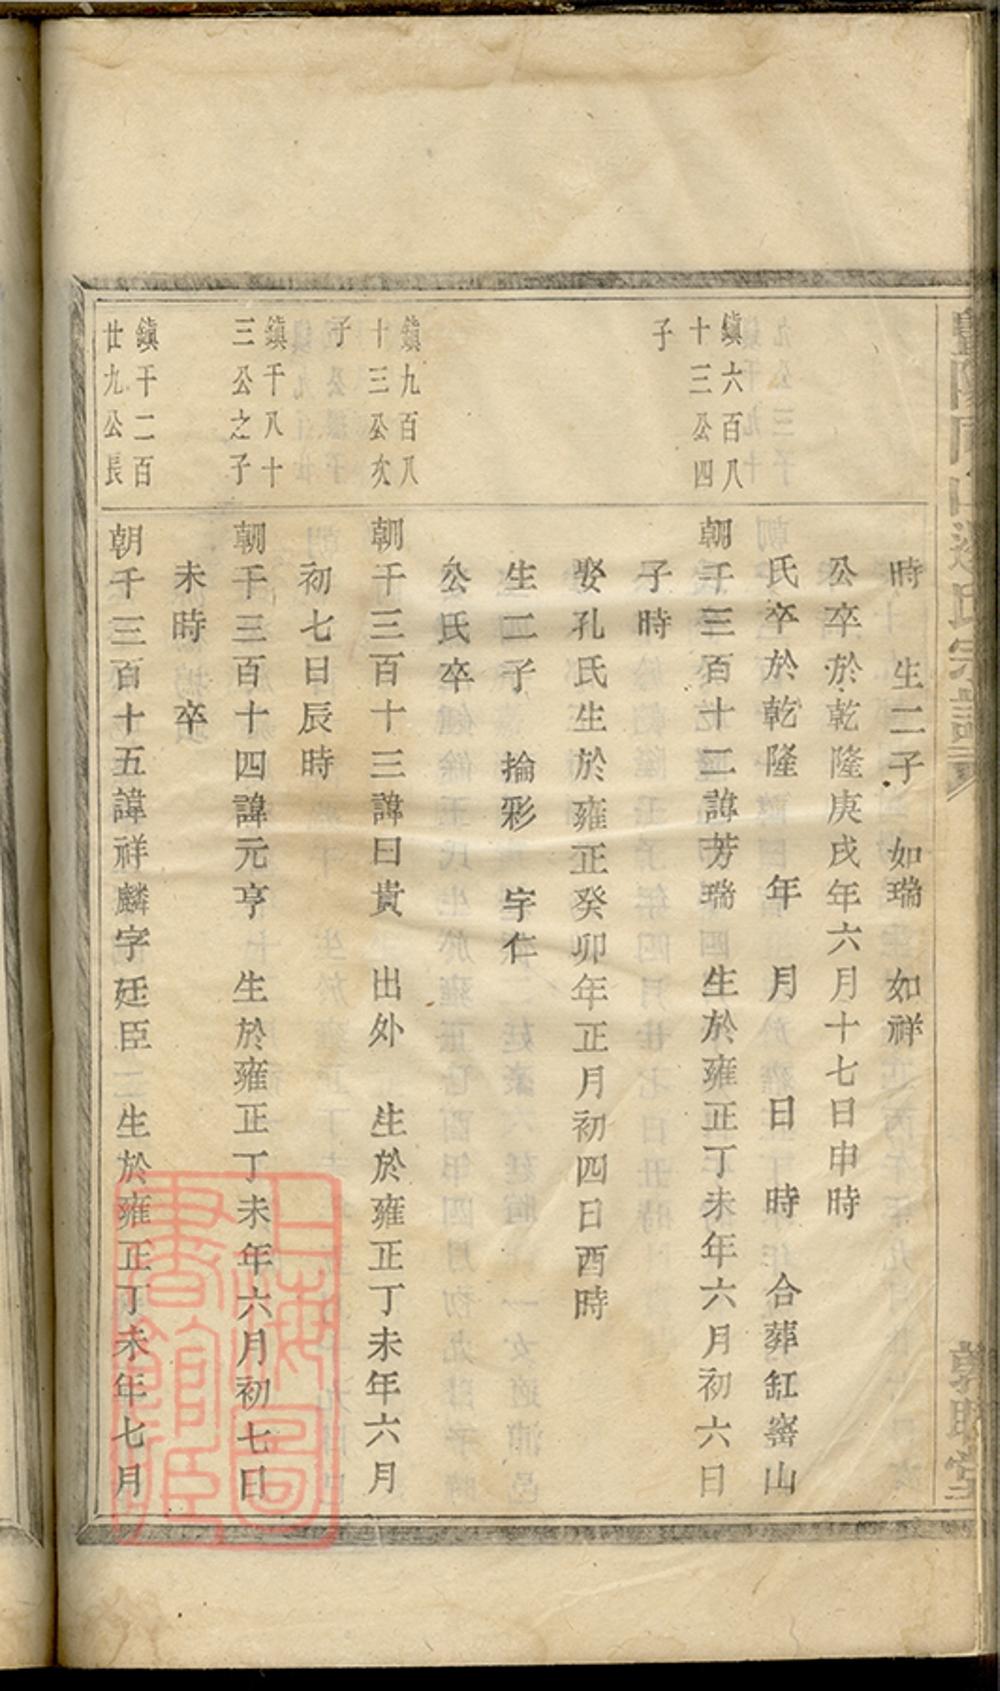 時　生二子　如瑞　如祥
公卒於乾隆庚戌年六月十七日申時
氏卒於乾隆　年　月　日　時　合葬缸窰山
鎮六百八
十三公四
子
朝千三百十二諱芳瑞　生於雍正丁未年六月初六日
子時
娶孔氏生於雍正癸卯年正月初四日酉時
生二子　掄彩　宇仁
公氏卒
鎮九百八
十三公次
子
朝千三百十三諱曰貴　出外　生於雍正丁未年六月
初七日辰時
鎮千八十
三公之子
朝千三百十四諱元亨　生於雍正丁未年六月初七日
未時　卒
鎮千二百
廿九公長
朝千三百十五諱祥麟字廷臣　生於雍正丁未年七月
上海圖
書館藏